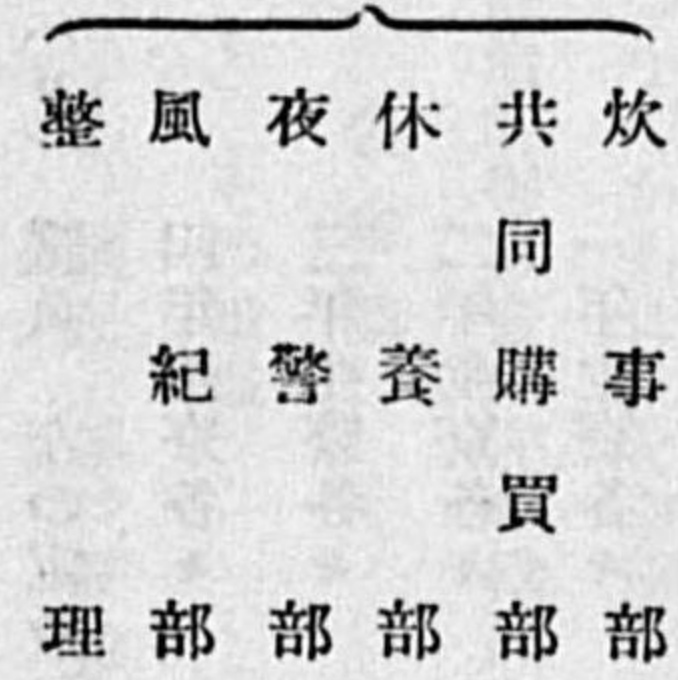 炊事部
共同購買部
休養部
夜警部
風紀部
整理